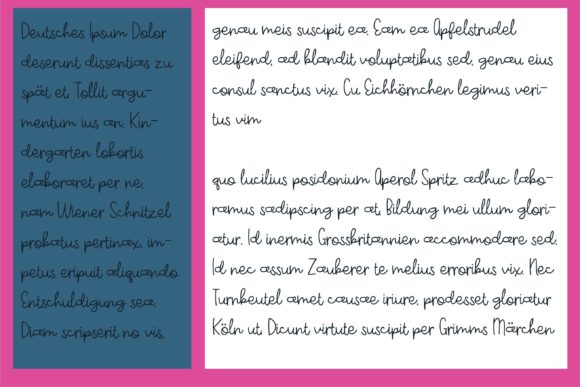 Deutsches Ipsum Dolor
deserunt dissentias zu
spät et, Tollit argu-
mentum ius an. Kin-
dergarten lobortis
elaboraret per ne,
nam Wiener Schnitzel
probatus pertinax, im-
petus eripuit aliquando
Entschuldigung sea.
Diam scripserit no vis,
genau meis suscipit ea. Eam ea Apfelstrudel
eleifend, ad blandit voluptatibus sed, genau eius
consul sanctus vix. Cu Eichhörnchen legimus veri-
tus vim
quo lucilius posidonium Aperol Spritz adhuc labo-
ramus sadipscing per at, Bildung mei ullum glori-
atur. Id inermis Grossbritannien accommodare sed,
Id nec assum Zauberer te melius erroribus vix. Nec
Turnbeutel amet causae iriure, prodesset gloriatur
Köln ut. Dicunt virtute suscipit per Grimms Märchen